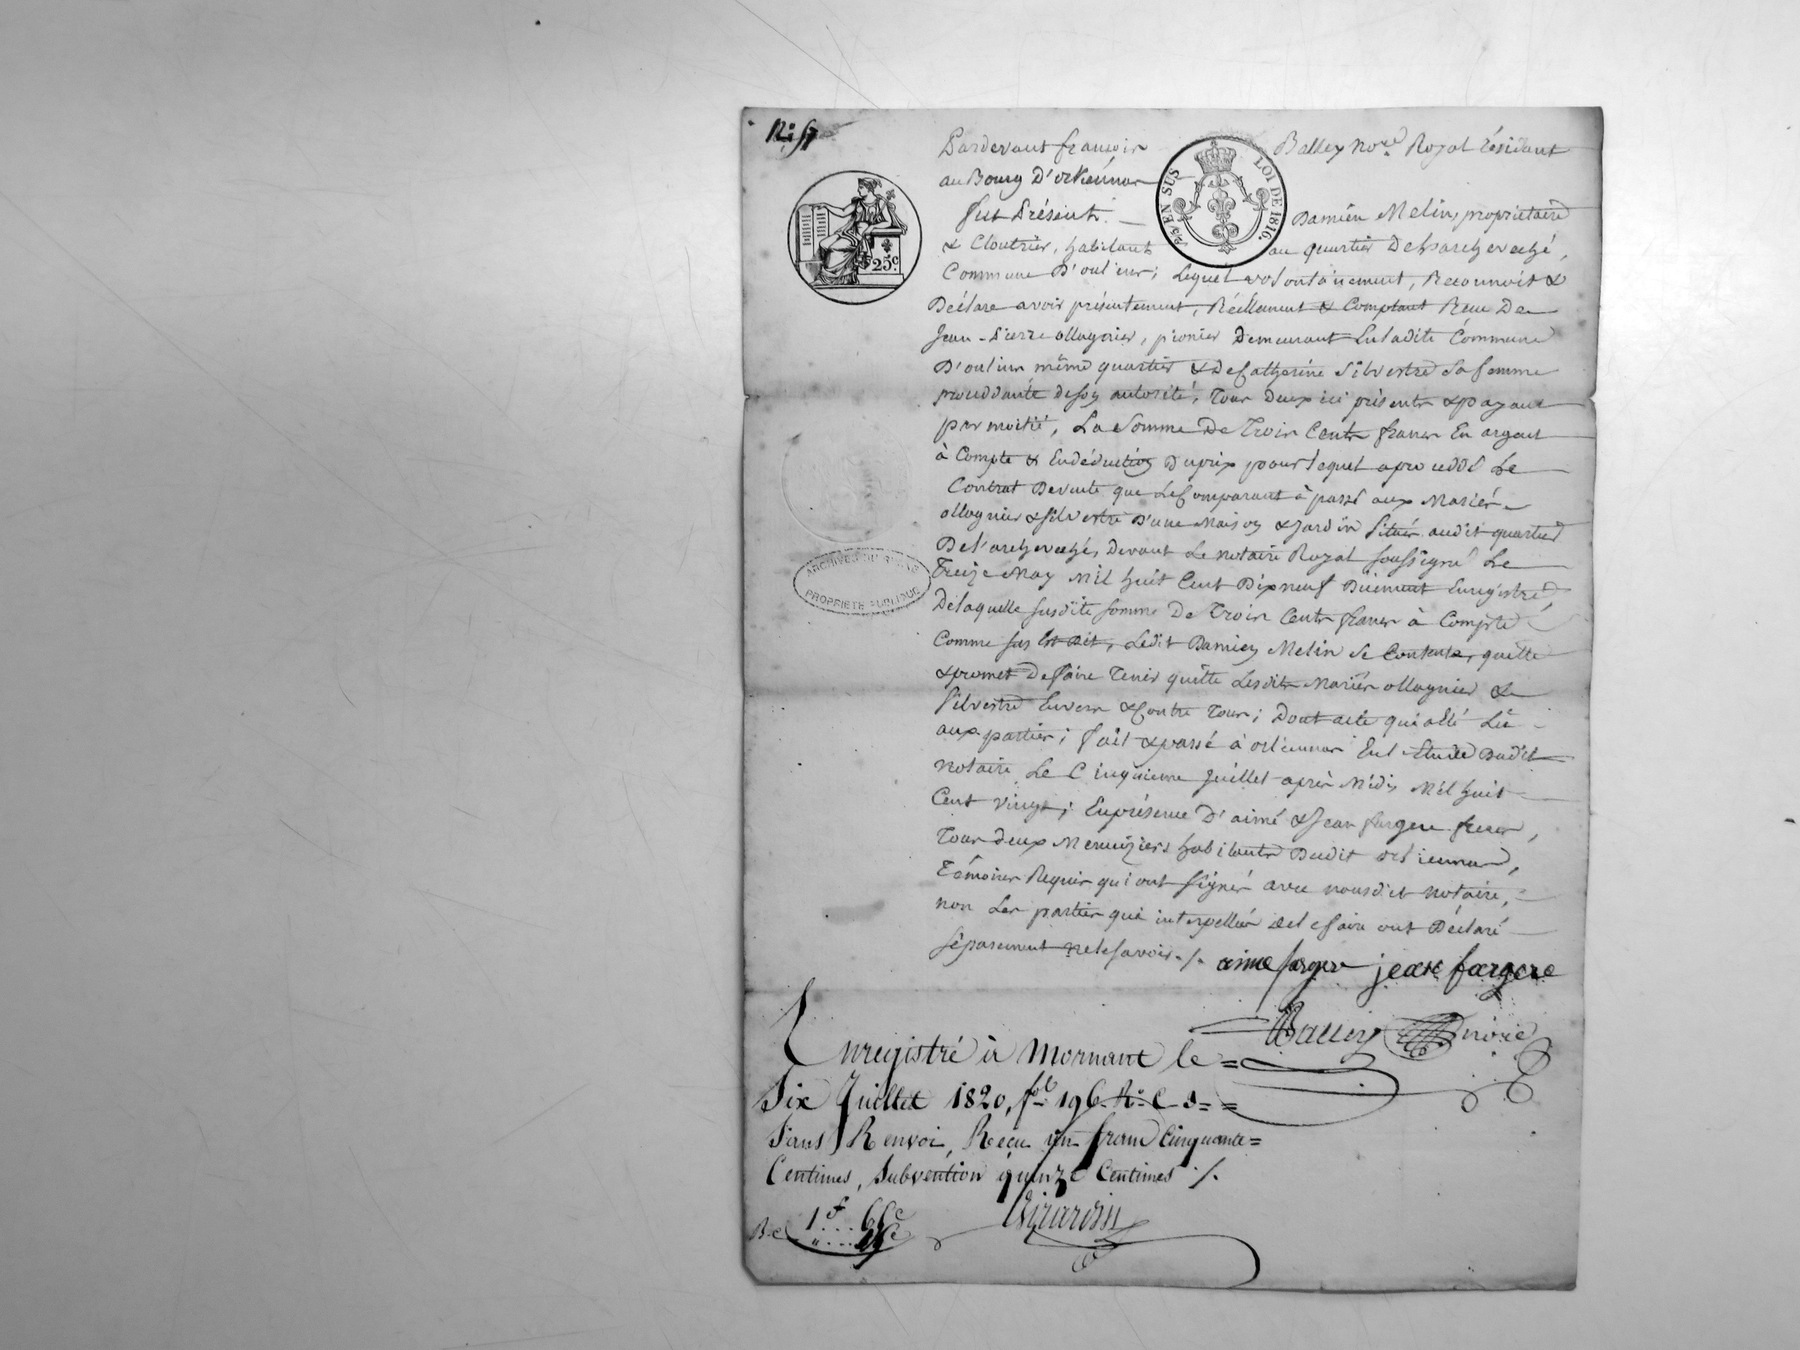 Pardevant françois Balley no.re Royal résidant
au Bourg D'orliénnas
fut Présent
Damien Melin, propriétaire
& Cloutrier, habitant au quartier De Larcheveché,
Commune D'oulins; Lequel volontairement, Reconnoit &
Déclare avoir présentement, Réellement & Comptant Recu De
Jean-Pierre ollagnier, pionier Demeurant Enladite Commune
D'oulins même quartier & deCatherine Silvestre Sa femme
proceddante desoy autorité, Tous Deux ici présents & payant
par moitié, La Somme De Trois Cents francs En argent
à Compte & Endéduction Duprix pourlequel aproceddé Le
Contrat Devente que LeComparant à passé aux Mariés
ollagnier & Silvestre D'une Maison & Jardin Situés audit quartier
De l'archevechés, Devant Le notaire Royal Soussigné Le
Treize May Mil huit Cent Dixneuf Duement Enregistré,
Delaquelle susdite somme De Trois Cents francs à Compte
Comme sus Est Dit, Ledit Damien Melin se Contente, quitte
& promet Defaire Tenir quitte Lesdits Mariés ollagnier &
Silvestre Envers & Contre Tous; Dont acte quiaété Lû
aux parties; fait & passé à orliennas Enl'Etude Dudit
notaire Le Cinquieme Juillet après Midi, Mil huit
Cent vingt; Enprésence D'aimé & Jean fargere freres,
Tous deux Menuiziers habitants Dudit orliennas,
Témoins Requis qui ont Signés avec nousdit notaire,
non Les parties qui interpellées delefaire ont Déclaré
séparement nelesavoir./.
aime fargere jean fargere
Balley no.re
Enregistré à Mornant le =
Six Juillet 1820, f.º 196. R.º C. s. =
Sans Renvoi, Reçu un franc Cinquante =
Centimes, Subvention quinze Centimes ./.
1.f .. 65c
Girardin
25.c
EN SUS
LOI DE 1816.
ARCHIVES DU RHONE
PROPRIETE PUBLIQUE